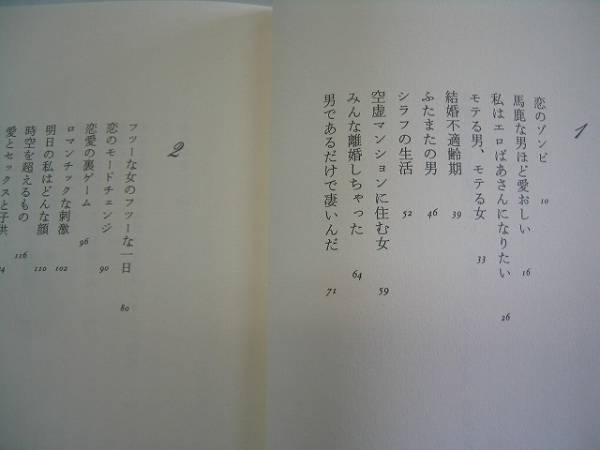 1
恋のゾンビ 10
馬鹿な男ほど愛おしい 16
私はエロばあさんになりたい 26
モテる男、モテる女 33
結婚不適齢期 39
ふたまたの男 46
シラフの生活 52
空虚マンションに住む女 59
みんな離婚しちゃった 64
男であるだけで凄いんだ 71
2
フツーな女のフツーな一日 80
恋のモードチェンジ 90
恋愛の裏ゲーム 96
ロマンチックな刺激 102
明日の私はどんな顔 110
時空を超えるもの 116
愛とセックスと子供